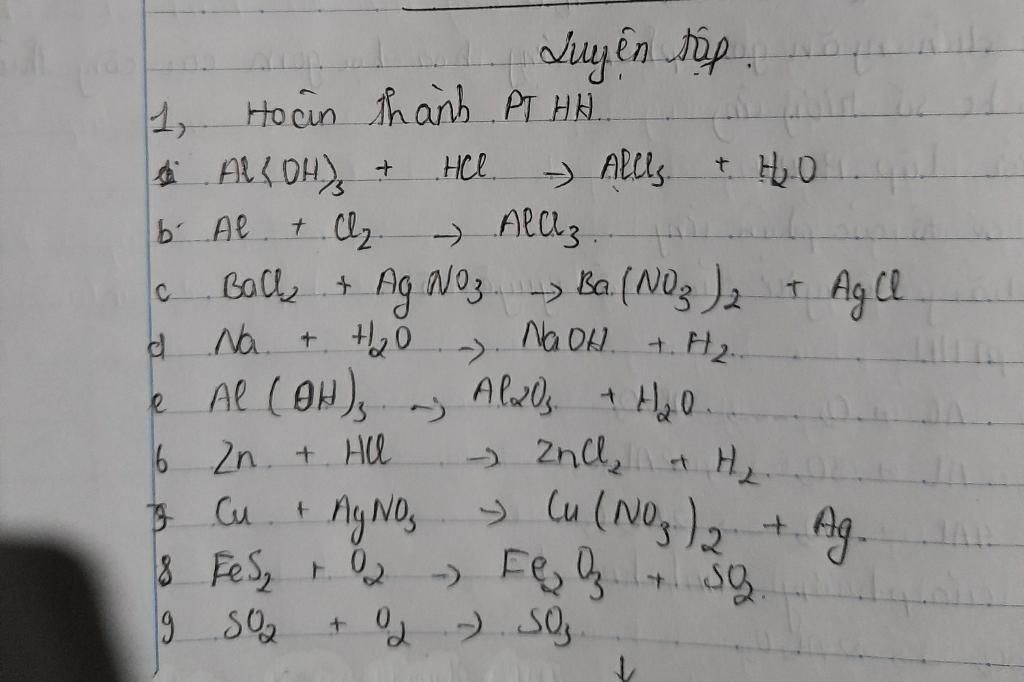 Luyện tập.
1, Hoàn thành PT HH.
a. Al(OH)₃ + HCl → AlCl₃ + H₂O
b. Al + Cl₂ → AlCl₃.
c BaCl₂ + AgNO₃ → Ba(NO₃)₂ + AgCl
d Na + H₂O → NaOH + H₂.
e Al(OH)₃ → Al₂O₃ + H₂O.
6 Zn + HCl → ZnCl₂ + H₂.
7 Cu + AgNO₃ → Cu(NO₃)₂ + Ag.
8 FeS₂ + O₂ → Fe₂O₃ + SO₂.
9 SO₂ + O₂ → SO₃
↓